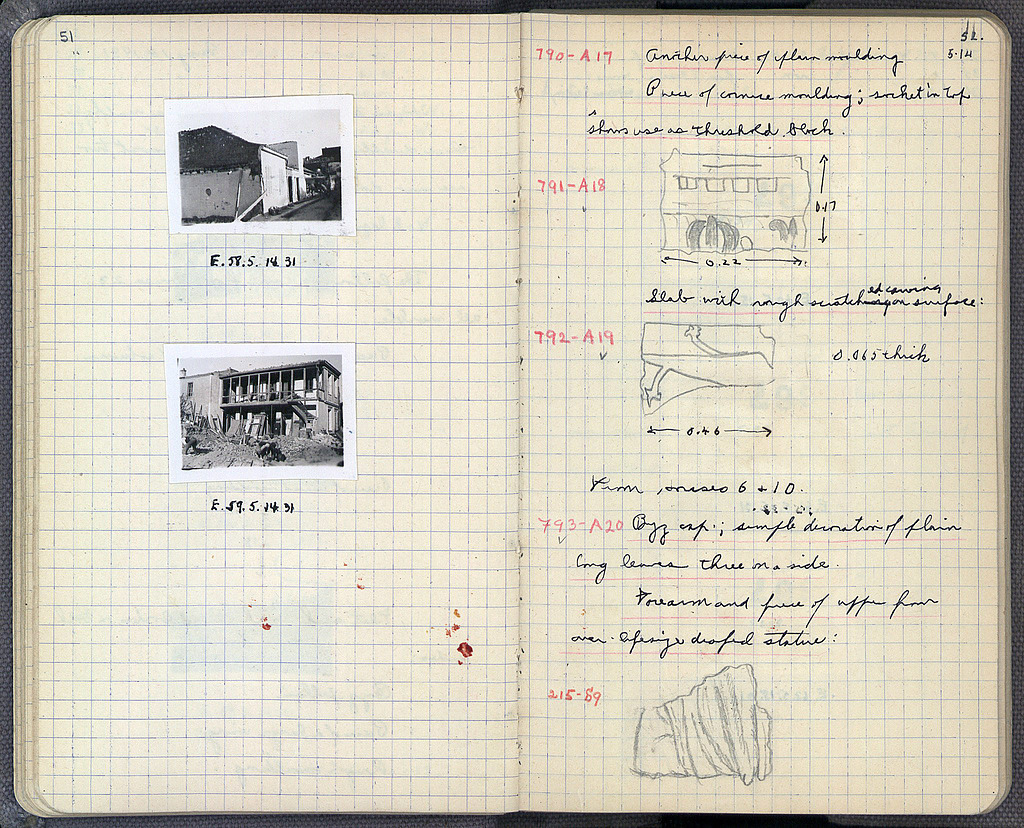 51
E.58.5.14.31
E.59.5.14.31
52.
5·14
790-A17 Another piece of plain moulding
Piece of cornice moulding; socket in top
shows use as threshold block.
791-A18
0.17
0.22
Slab with rough scratched carving on surface:
792-A19
0.065 thick
0.46
From houses 6 + 10.
793-A20 Byz cap.; simple decoration of plain
long leaves three on a side.
Forearm and piece of upper from
over-lifesize draped statue:
215-S9